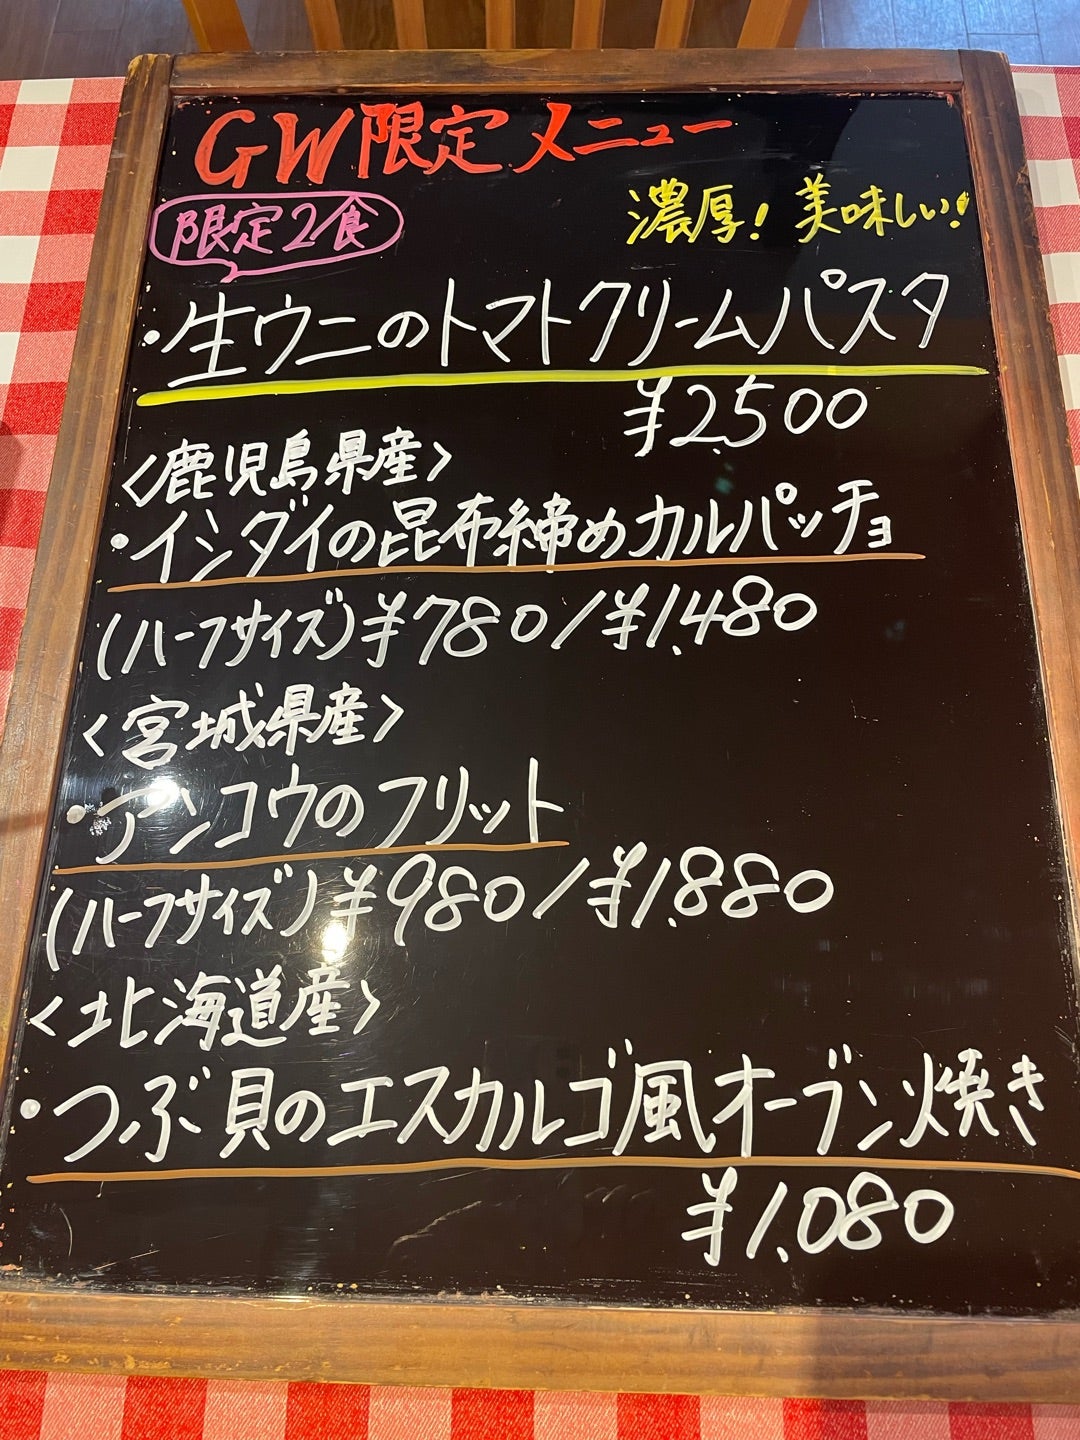 GW限定メニュー
限定2食
濃厚!美味しい!
・生ウニのトマトクリームパスタ
¥2,500
<鹿児島県産>
・イシダイの昆布締めカルパッチョ
(ハーフサイズ)¥780/¥1,480
<宮城県産>
・アンコウのフリット
(ハーフサイズ)¥980/¥1,880
<北海道産>
・つぶ貝のエスカルゴ風オーブン焼き
¥1,080